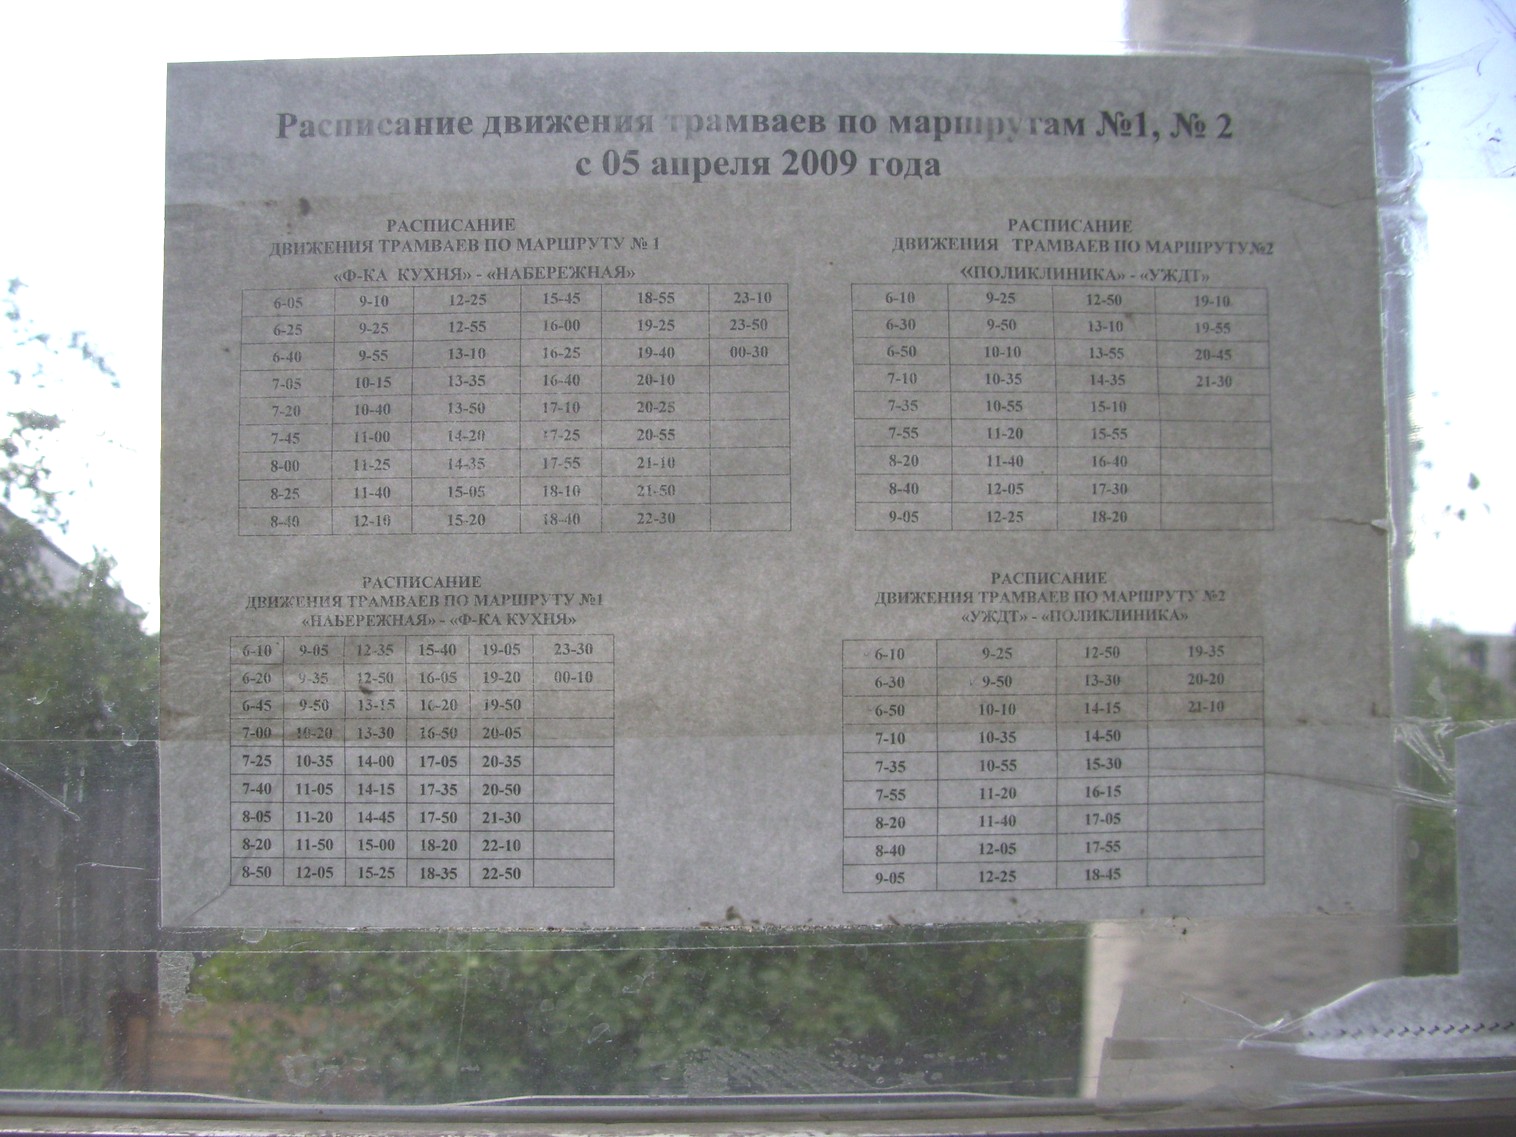 Расписание движения трамваев по маршрутам №1, № 2
с 05 апреля 2009 года
РАСПИСАНИЕ
ДВИЖЕНИЯ ТРАМВАЕВ ПО МАРШРУТУ № 1
«Ф-КА КУХНЯ» - «НАБЕРЕЖНАЯ»
6-05 9-10 12-25 15-45 18-55 23-10
6-25 9-25 12-55 16-00 19-25 23-50
6-40 9-55 13-10 16-25 19-40 00-30
7-05 10-15 13-35 16-40 20-10
7-20 10-40 13-50 17-10 20-25
7-45 11-00 14-20 17-25 20-55
8-00 11-25 14-35 17-55 21-10
8-25 11-40 15-05 18-10 21-50
8-40 12-10 15-20 18-40 22-30
РАСПИСАНИЕ
ДВИЖЕНИЯ ТРАМВАЕВ ПО МАРШРУТУ№2
«ПОЛИКЛИНИКА» - «УЖДТ»
6-10 9-25 12-50 19-10
6-30 9-50 13-10 19-55
6-50 10-10 13-55 20-45
7-10 10-35 14-35 21-30
7-35 10-55 15-10
7-55 11-20 15-55
8-20 11-40 16-40
8-40 12-05 17-30
9-05 12-25 18-20
РАСПИСАНИЕ
ДВИЖЕНИЯ ТРАМВАЕВ ПО МАРШРУТУ №1
«НАБЕРЕЖНАЯ» - «Ф-КА КУХНЯ»
6-10 9-05 12-35 15-40 19-05 23-30
6-20 9-35 12-50 16-05 19-20 00-10
6-45 9-50 13-15 16-20 19-50
7-00 10-20 13-30 16-50 20-05
7-25 10-35 14-00 17-05 20-35
7-40 11-05 14-15 17-35 20-50
8-05 11-20 14-45 17-50 21-30
8-20 11-50 15-00 18-20 22-10
8-50 12-05 15-25 18-35 22-50
РАСПИСАНИЕ
ДВИЖЕНИЯ ТРАМВАЕВ ПО МАРШРУТУ №2
«УЖДТ» - «ПОЛИКЛИНИКА»
6-10 9-25 12-50 19-35
6-30 9-50 13-30 20-20
6-50 10-10 14-15 21-10
7-10 10-35 14-50
7-35 10-55 15-30
7-55 11-20 16-15
8-20 11-40 17-05
8-40 12-05 17-55
9-05 12-25 18-45